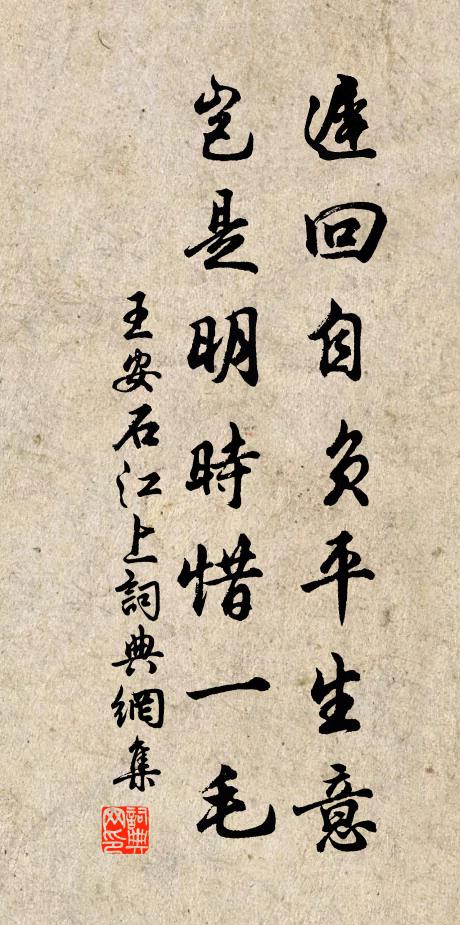 遲回自負平生意
豈是明時惜一毛
王安石江上詞典網集
詞典网印